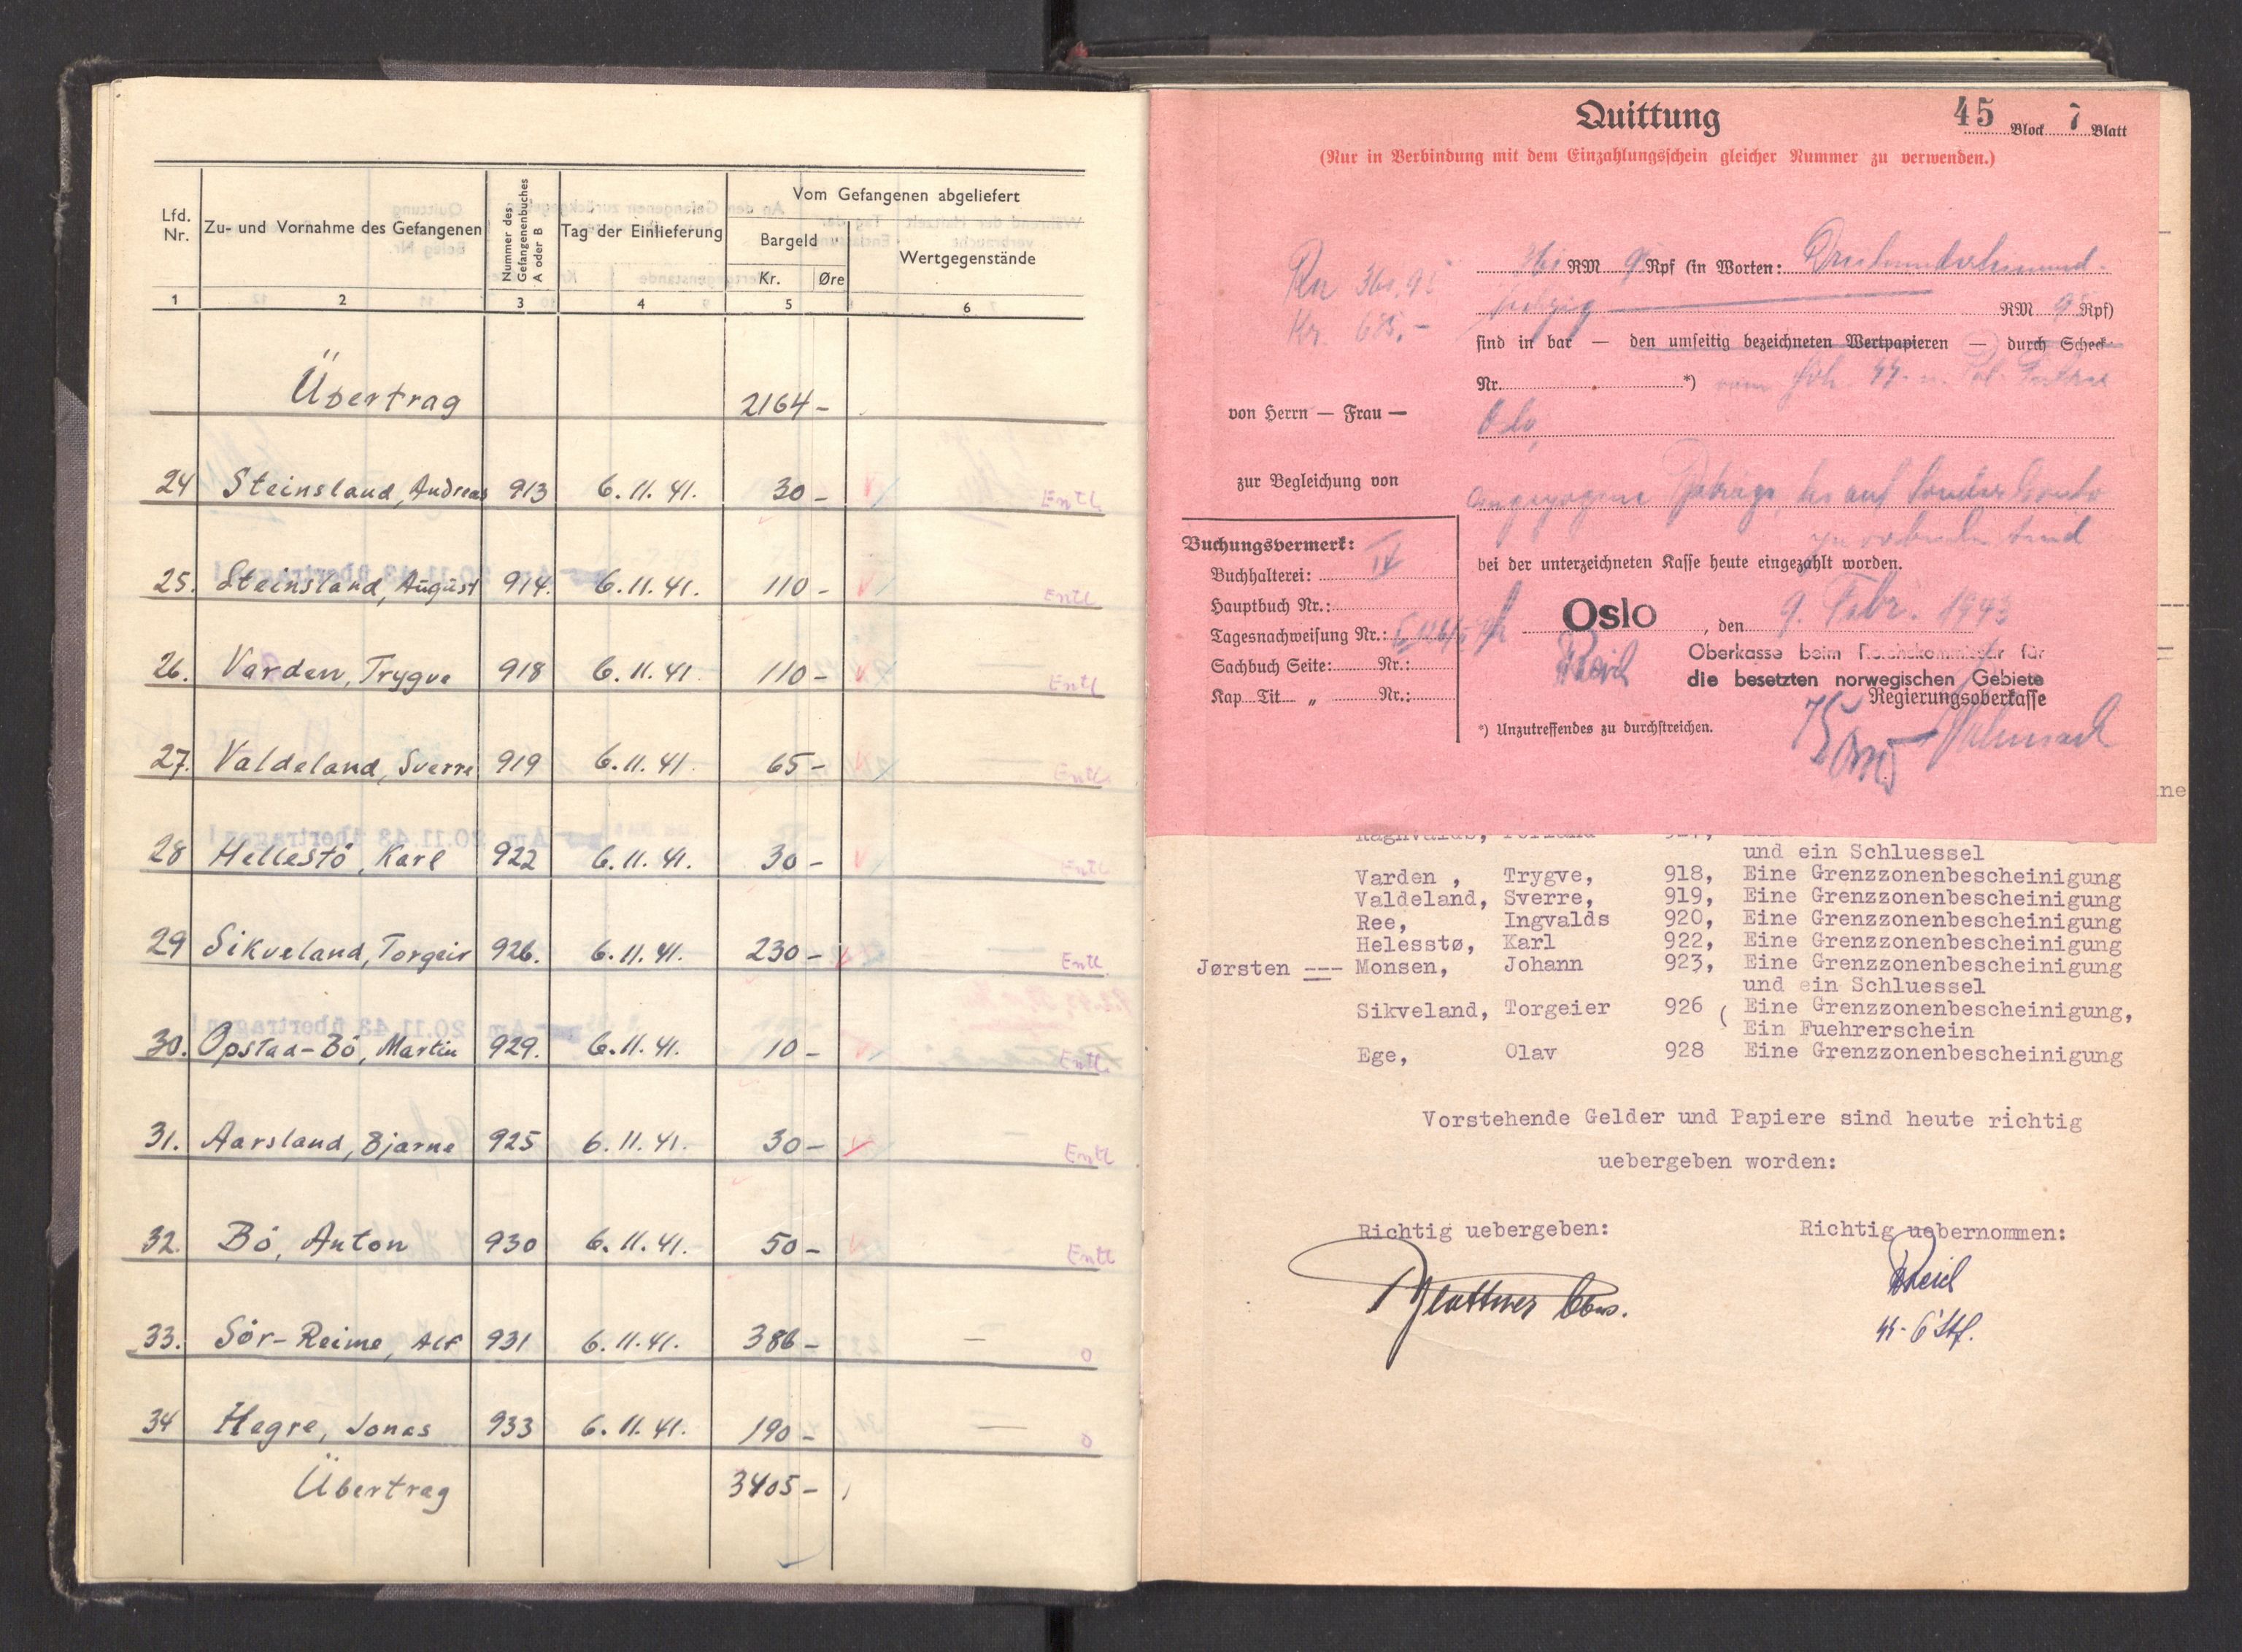 Lfd. Nr.
Zu- und Vornahme des Gefangenen
Nummer des Gefangenenbuches A oder B
Tag der Einlieferung
Vom Gefangenen abgeliefert
Bargeld
Kr. Øre
Wertgegenstände
1 2 3 4 5 6
Übertrag 2164 -
24 Steinsland, Andreas 913 6.11.41. 30 - Entl.
25. Steinsland, August 914. 6.11.41. 110 - Entl
26. Varden, Trygve 918 6.11.41 110 - Entl
27. Valdeland, Sverre 919 6.11.41. 65 - Entl.
28 Hellestö, Karl 922 6.11.41. 30 - Entl
29 Sikveland, Torgeir 926. 6.11.41. 230 - — Entl
30. Opstad-Bö, Martin 929. 6.11.41. 10 - Entl.
31. Aarsland, Bjarne 925 6.11.41. 30 - — Entl
32. Bö, Anton 930 6.11.41. 50 - Entl
33. Sör-Reime, Alf 931 6.11.41. 386 - — 0
34 Hegre, Jonas 933 6.11.41. 190 - — 0
Übertrag 3405 -
Quittung
45 Block 7 Blatt
(Nur in Verbindung mit dem Einzahlungsschein gleicher Nummer zu verwenden.)
361 RM 95 Rpf (in Worten:
RM 95 Rpf)
Rm 361,95
Kr. 685.-
sind in bar — den umseitig bezeichneten Wertpapieren — durch Scheck
Nr. *)
von Herrn — Frau — Oslo
zur Begleichung von
bei der unterzeichneten Kasse heute eingezahlt worden.
Buchungsvermerk:
Buchhalterei: IV
Hauptbuch Nr.:
Tagesnachweisung Nr.:
Sachbuch Seite: Nr.:
Kap. Tit. „ Nr.:
Oslo, den 9. Febr. 1943
Oberkasse beim Reichskommissar für
die besetzten norwegischen Gebiete
Regierungsoberkasse
*) Unzutreffendes zu durchstreichen.
und ein Schluessel
Varden , Trygve, 918, Eine Grenzzonenbescheinigung
Valdeland, Sverre, 919, Eine Grenzzonenbescheinigung
Ree, Ingvalds 920, Eine Grenzzonenbescheinigung
Helesstø, Karl 922, Eine Grenzzonenbescheinigung
Jørsten --- Monsen, Johann 923, Eine Grenzzonenbescheinigung
und ein Schluessel
Sikveland, Torgeier 926 ( Eine Grenzzonenbescheinigung,
Ein Fuehrerschein
Ege, Olav 928 Eine Grenzzonenbescheinigung
Vorstehende Gelder und Papiere sind heute richtig
uebergeben worden:
Richtig uebergeben: Richtig uebernommen: